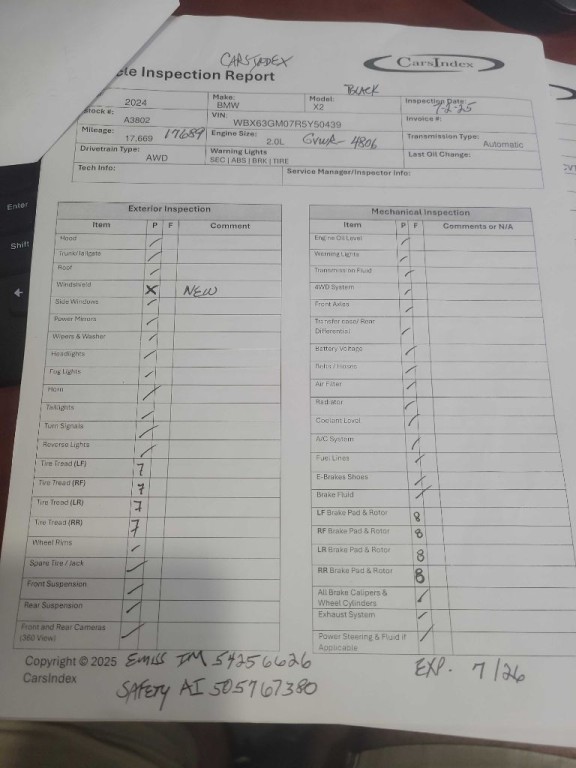 Enter
Shift
CARSINDEX
CarsIndex
cle Inspection Report
BLACK
2024 Make: BMW Model: X2 Inspection Date: 7-2-25
Stock #: A3802 VIN: WBX63GM07R5Y50439 Invoice #:
Mileage: 17,669 17689 Engine Size: 2.0L GVWR 4806 Transmission Type: Automatic
Drivetrain Type: AWD Warning Lights SEC | ABS | BRK | TIRE Last Oil Change:
Tech Info: Service Manager/Inspector Info:
Exterior Inspection
Item P F Comment
Hood
Trunk/Tailgate
Roof
Windshield X NEW
Side Windows
Power Mirrors
Wipers & Washer
Headlights
Fog Lights
Horn
Taillights
Turn Signals
Reverse Lights
Tire Tread (LF) 7
Tire Tread (RF) 7
Tire Tread (LR) 7
Tire Tread (RR) 7
Wheel Rims
Spare Tire / Jack
Front Suspension
Rear Suspension
Front and Rear Cameras
(360 View)
Mechanical Inspection
Item P F Comments or N/A
Engine Oil Level
Warning Lights
Transmission Fluid
4WD System
Front Axles
Transfer case/ Rear
Differential
Battery Voltage
Belts / Hoses
Air Filter
Radiator
Coolant Level
A/C System
Fuel Lines
E-Brakes Shoes
Brake Fluid
LF Brake Pad & Rotor 8
RF Brake Pad & Rotor 8
LR Brake Pad & Rotor 8
RR Brake Pad & Rotor 8
All Brake Calipers &
Wheel Cylinders
Exhaust System
Power Steering & Fluid if
Applicable
Copyright © 2025 EMISS IM 54256626
CarsIndex
SAFETY AI 505767380
EXP. 7/26